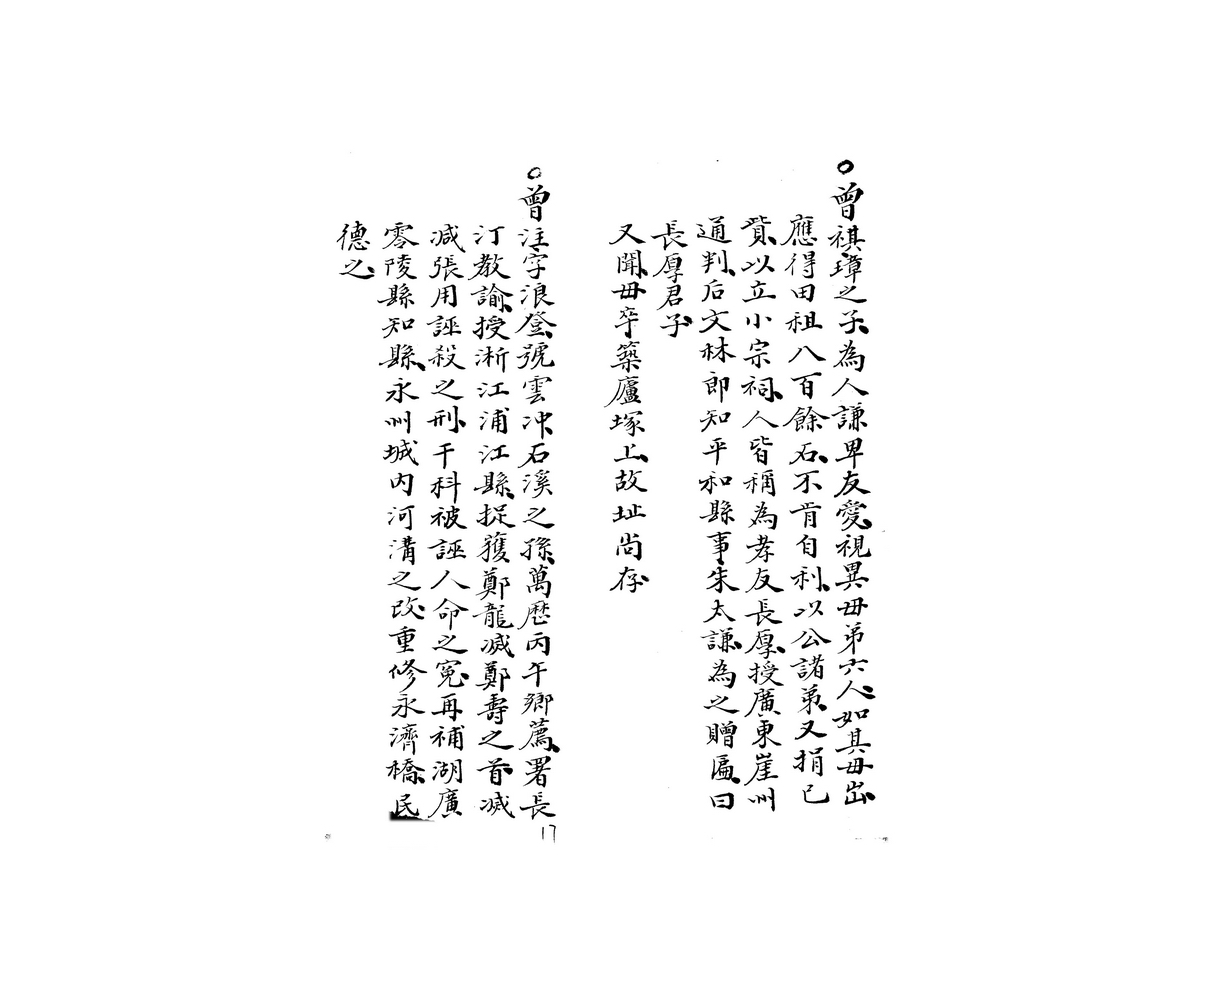 ○曾祺璋之子為人謙卑友愛視異毋弟六人如其毋出
應得田租八百餘石不肯自利以公諸弟又捐己
貲以立小宗祠人皆稱為孝友長厚授廣東崖州
通判后文林郎知平和縣事朱太謙為之贈匾曰
長厚君子
又聞毋卒築廬塚上故址尚存
○曾注字浪登號雲冲石溪之孫萬歷丙午鄉薦署長
汀教諭授淅江浦江縣捉獲鄭龍减鄭壽之首减
减張用誣殺之刑干科被誣人命之冤再補湖廣
零陵縣知縣永州城内河溝之改重修永濟橋民
德之
17